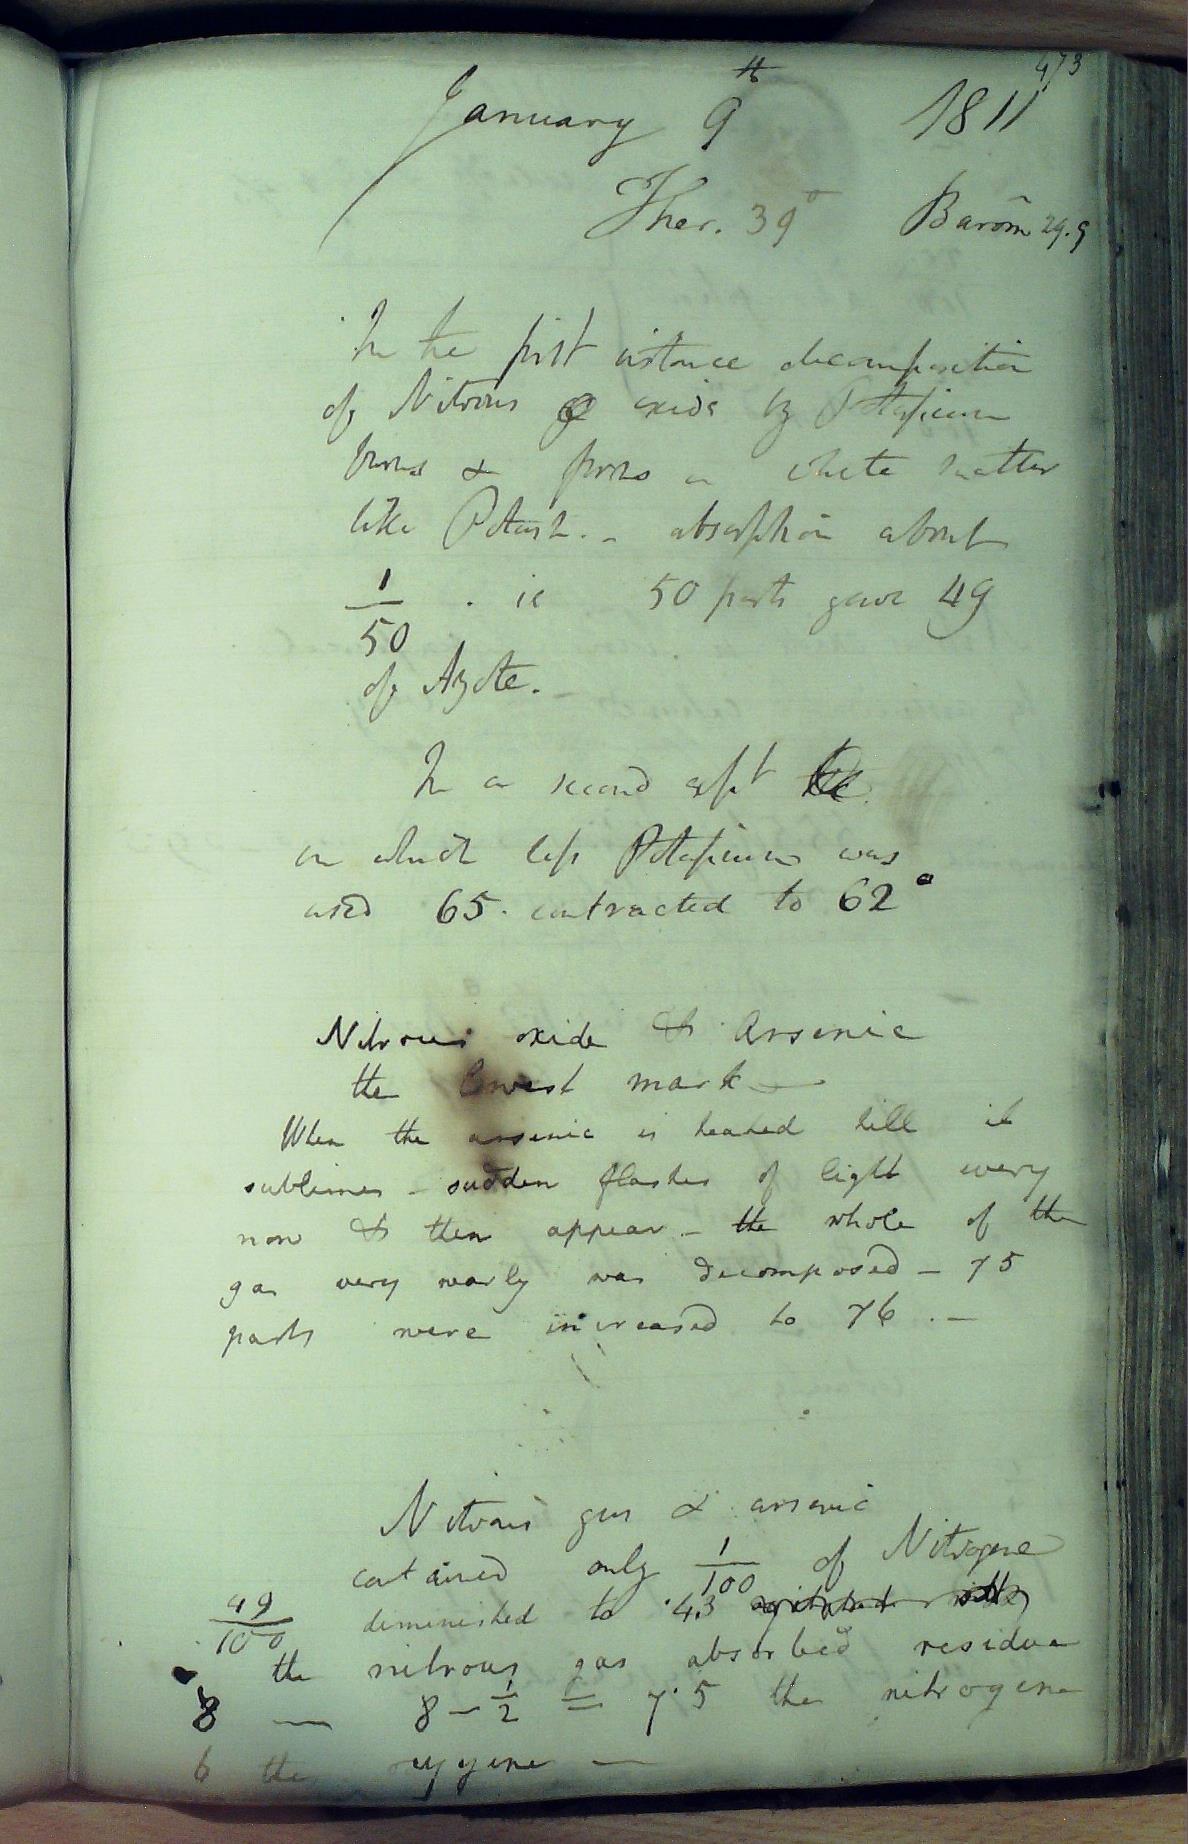 473
January 9th 1811
Ther. 39° Barom 29.9
In the first instance decomposition
of Nitrous oxide by Potassium
burns & forms a white matter
like Potash. - absorption about
1/50 . ie 50 parts gave 49
of Azote.
In a second expt the
in which less Potassium was
used 65. contracted to 62°
Nitrous oxide & Arsenic
the lowest mark —
When the arsenic is heated till it
sublimes - sudden flashes of light every
now & then appear - the whole of the
gas very nearly was decomposed - 75
parts were increased to 76 . —
Nitrous gas & arsenic
contained only 1/100 of Nitrogene
49/100 diminished to .43 agitated with
the nitrous gas absorbed residue
8 — 8 - 1/2 = 7.5 the nitrogene
6 the oxygene —